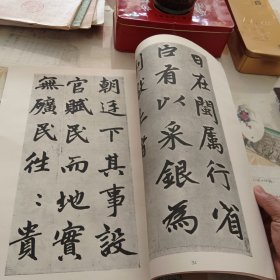 日在閩屬行省
臣有以采銀為
朝廷下其事設
官賦民而地實
無礦民往〻貴